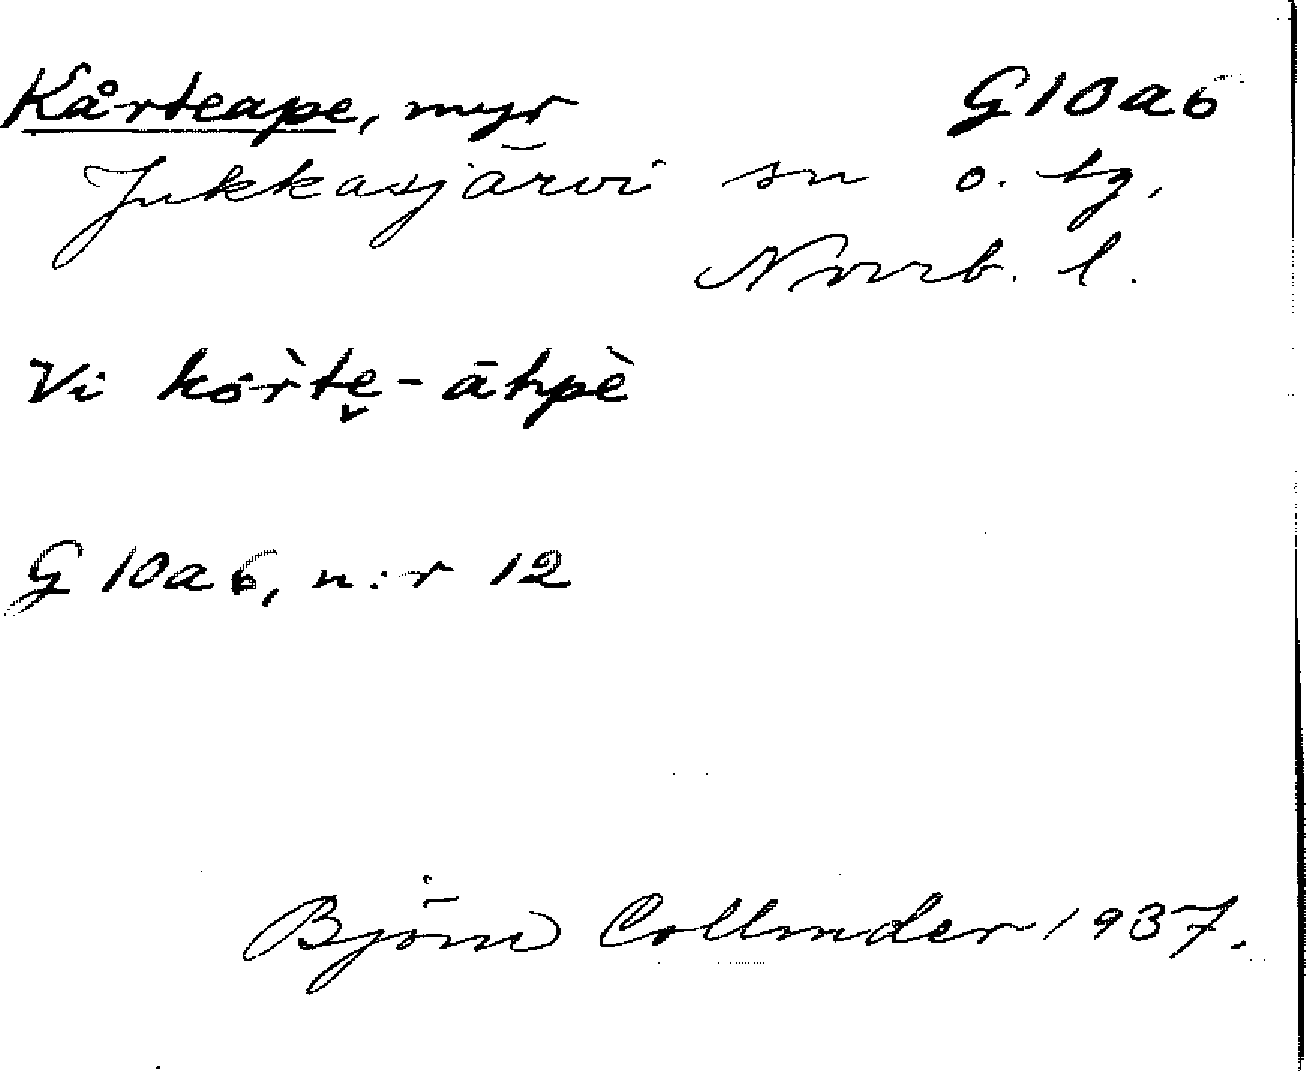 Kårteape, myr G10a6
Jukkasjärvi sn o. tg,
Norrb. l.
Vi kòr̀te̬-āhpè
G 10a6, n:r 12
Björn Collinder 1937.